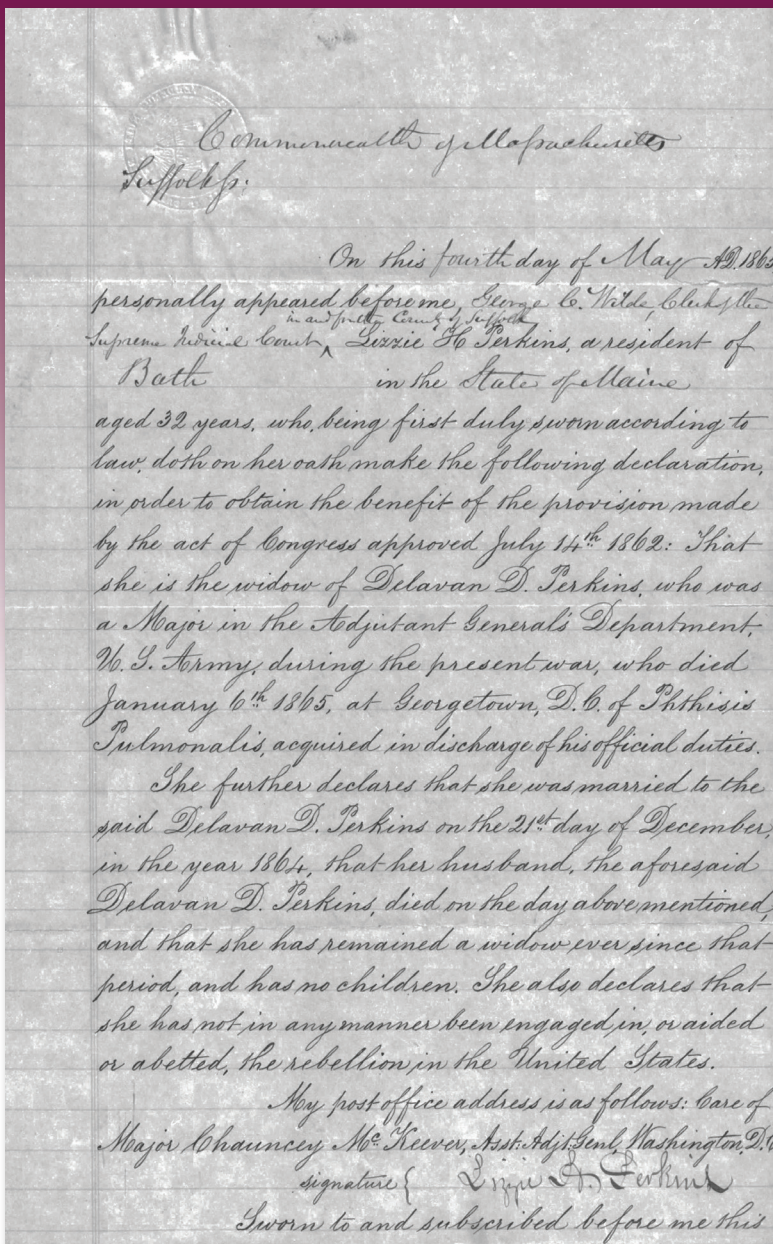 Commonwealth of Massachusetts
Suffolk ss.
On this fourth day of May A.D. 1865
personally appeared before me, George C. Wilde, Clerk of the
in and for the County of Suffolk
Supreme Judicial Court, ‸ Lizzie H Perkins, a resident of
Bath in the State of Maine
aged 32 years, who, being first duly sworn according to
law, doth on her oath make the following declaration,
in order to obtain the benefit of the provision made
by the act of Congress approved July 14th 1862: That
she is the widow of Delavan D. Perkins, who was
a Major in the Adjutant General's Department,
U. S. Army, during the present war, who died
January 6th 1865, at Georgetown, D.C. of Phthisis
Pulmonalis, acquired in discharge of his official duties.
She further declares that she was married to the
said Delavan D. Perkins on the 21st day of December,
in the year 1864, that her husband, the aforesaid
Delavan D. Perkins, died on the day above mentioned,
and that she has remained a widow ever since that
period, and has no children. She also declares that
she has not in any manner been engaged in, or aided
or abetted, the rebellion in the United States.
My post office address is as follows: Care of
Major Chauncey McKeever, Asst. Adjt. Genl, Washington, D.C
signature { Lizzie H. Perkins
Sworn to and subscribed before me this